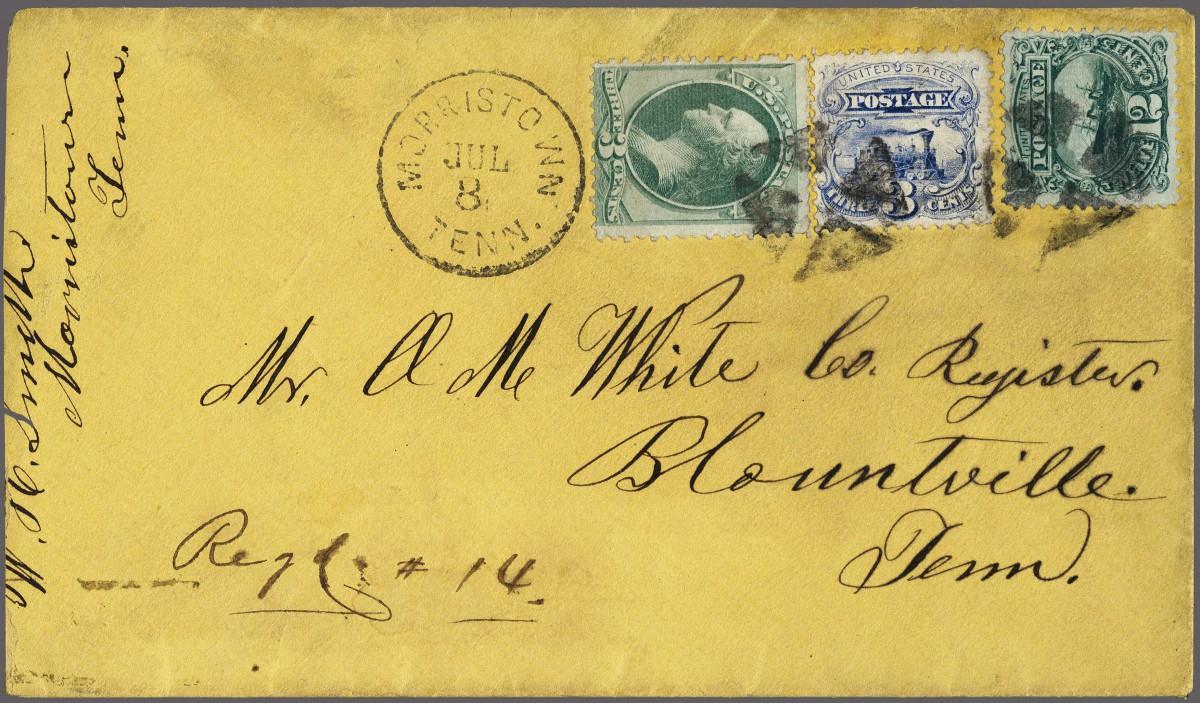 W. H. Smythe
Morristown
Tenn.
MORRISTOWN
JUL
8
TENN.
U.S. POSTAGE
3
UNITED STATES
POSTAGE
THREE 3 CENTS
UNITED STATES
POSTAGE
12
CENTS
Mr. A M White Co. Register.
Blountville.
Tenn.
Regd. # 14.